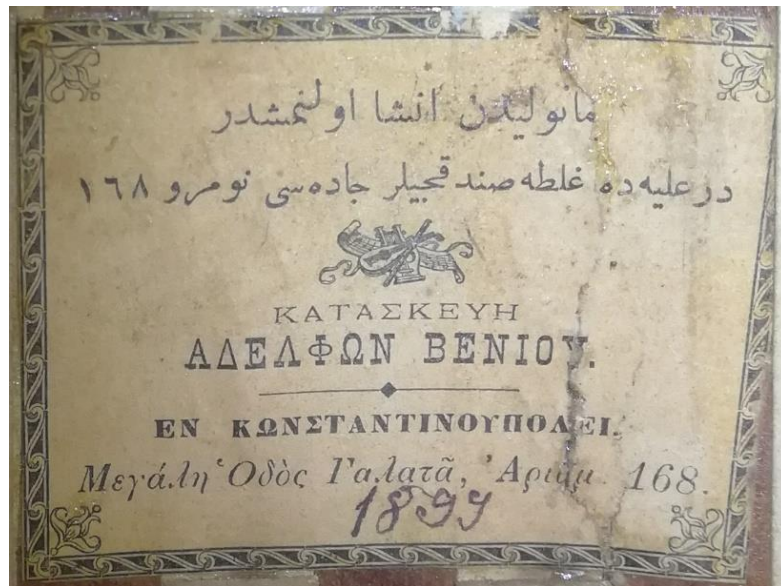 مانولیدن انشا اولنمشدر
درعلیه‌ده غلطه صندقجیلر جاده‌سی نومرو ١٦٨
ΚΑΤΑΣΚΕΥΗ
ΑΔΕΛΦΩΝ ΒΕΝΙΟΥ.
ΕΝ ΚΩΝΣΤΑΝΤΙΝΟΥΠΟΛΕΙ.
Μεγάλη Ὁδὸς Γαλατᾶ, Ἀριθμ. 168.
1899